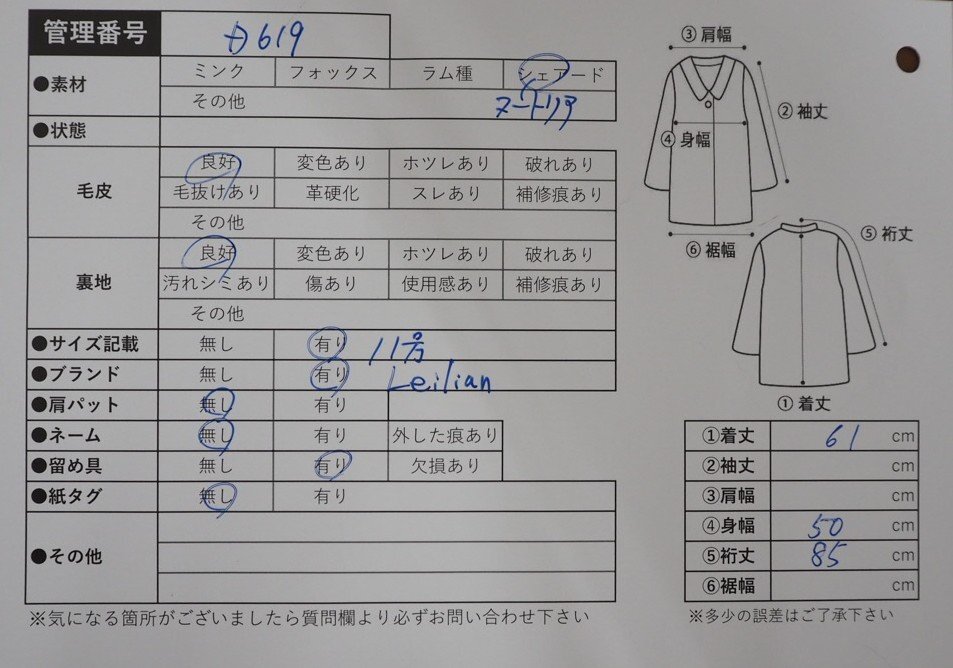 管理番号 D619
●素材 ミンク フォックス ラム種 シェアード
その他 ヌートリア
●状態
毛皮 良好 変色あり ホツレあり 破れあり
毛抜けあり 革硬化 スレあり 補修痕あり
その他
裏地 良好 変色あり ホツレあり 破れあり
汚れシミあり 傷あり 使用感あり 補修痕あり
その他
●サイズ記載 無し 有り 11号
●ブランド 無し 有り Leilian
●肩パット 無し 有り
●ネーム 無し 有り 外した痕あり
●留め具 無し 有り 欠損あり
●紙タグ 無し 有り
●その他
※気になる箇所がございましたら質問欄より必ずお問い合わせ下さい
③肩幅
②袖丈
④身幅
⑥裾幅
⑤裄丈
①着丈
①着丈 61 cm
②袖丈 cm
③肩幅 cm
④身幅 50 cm
⑤裄丈 85 cm
⑥裾幅 cm
※多少の誤差はご了承下さい